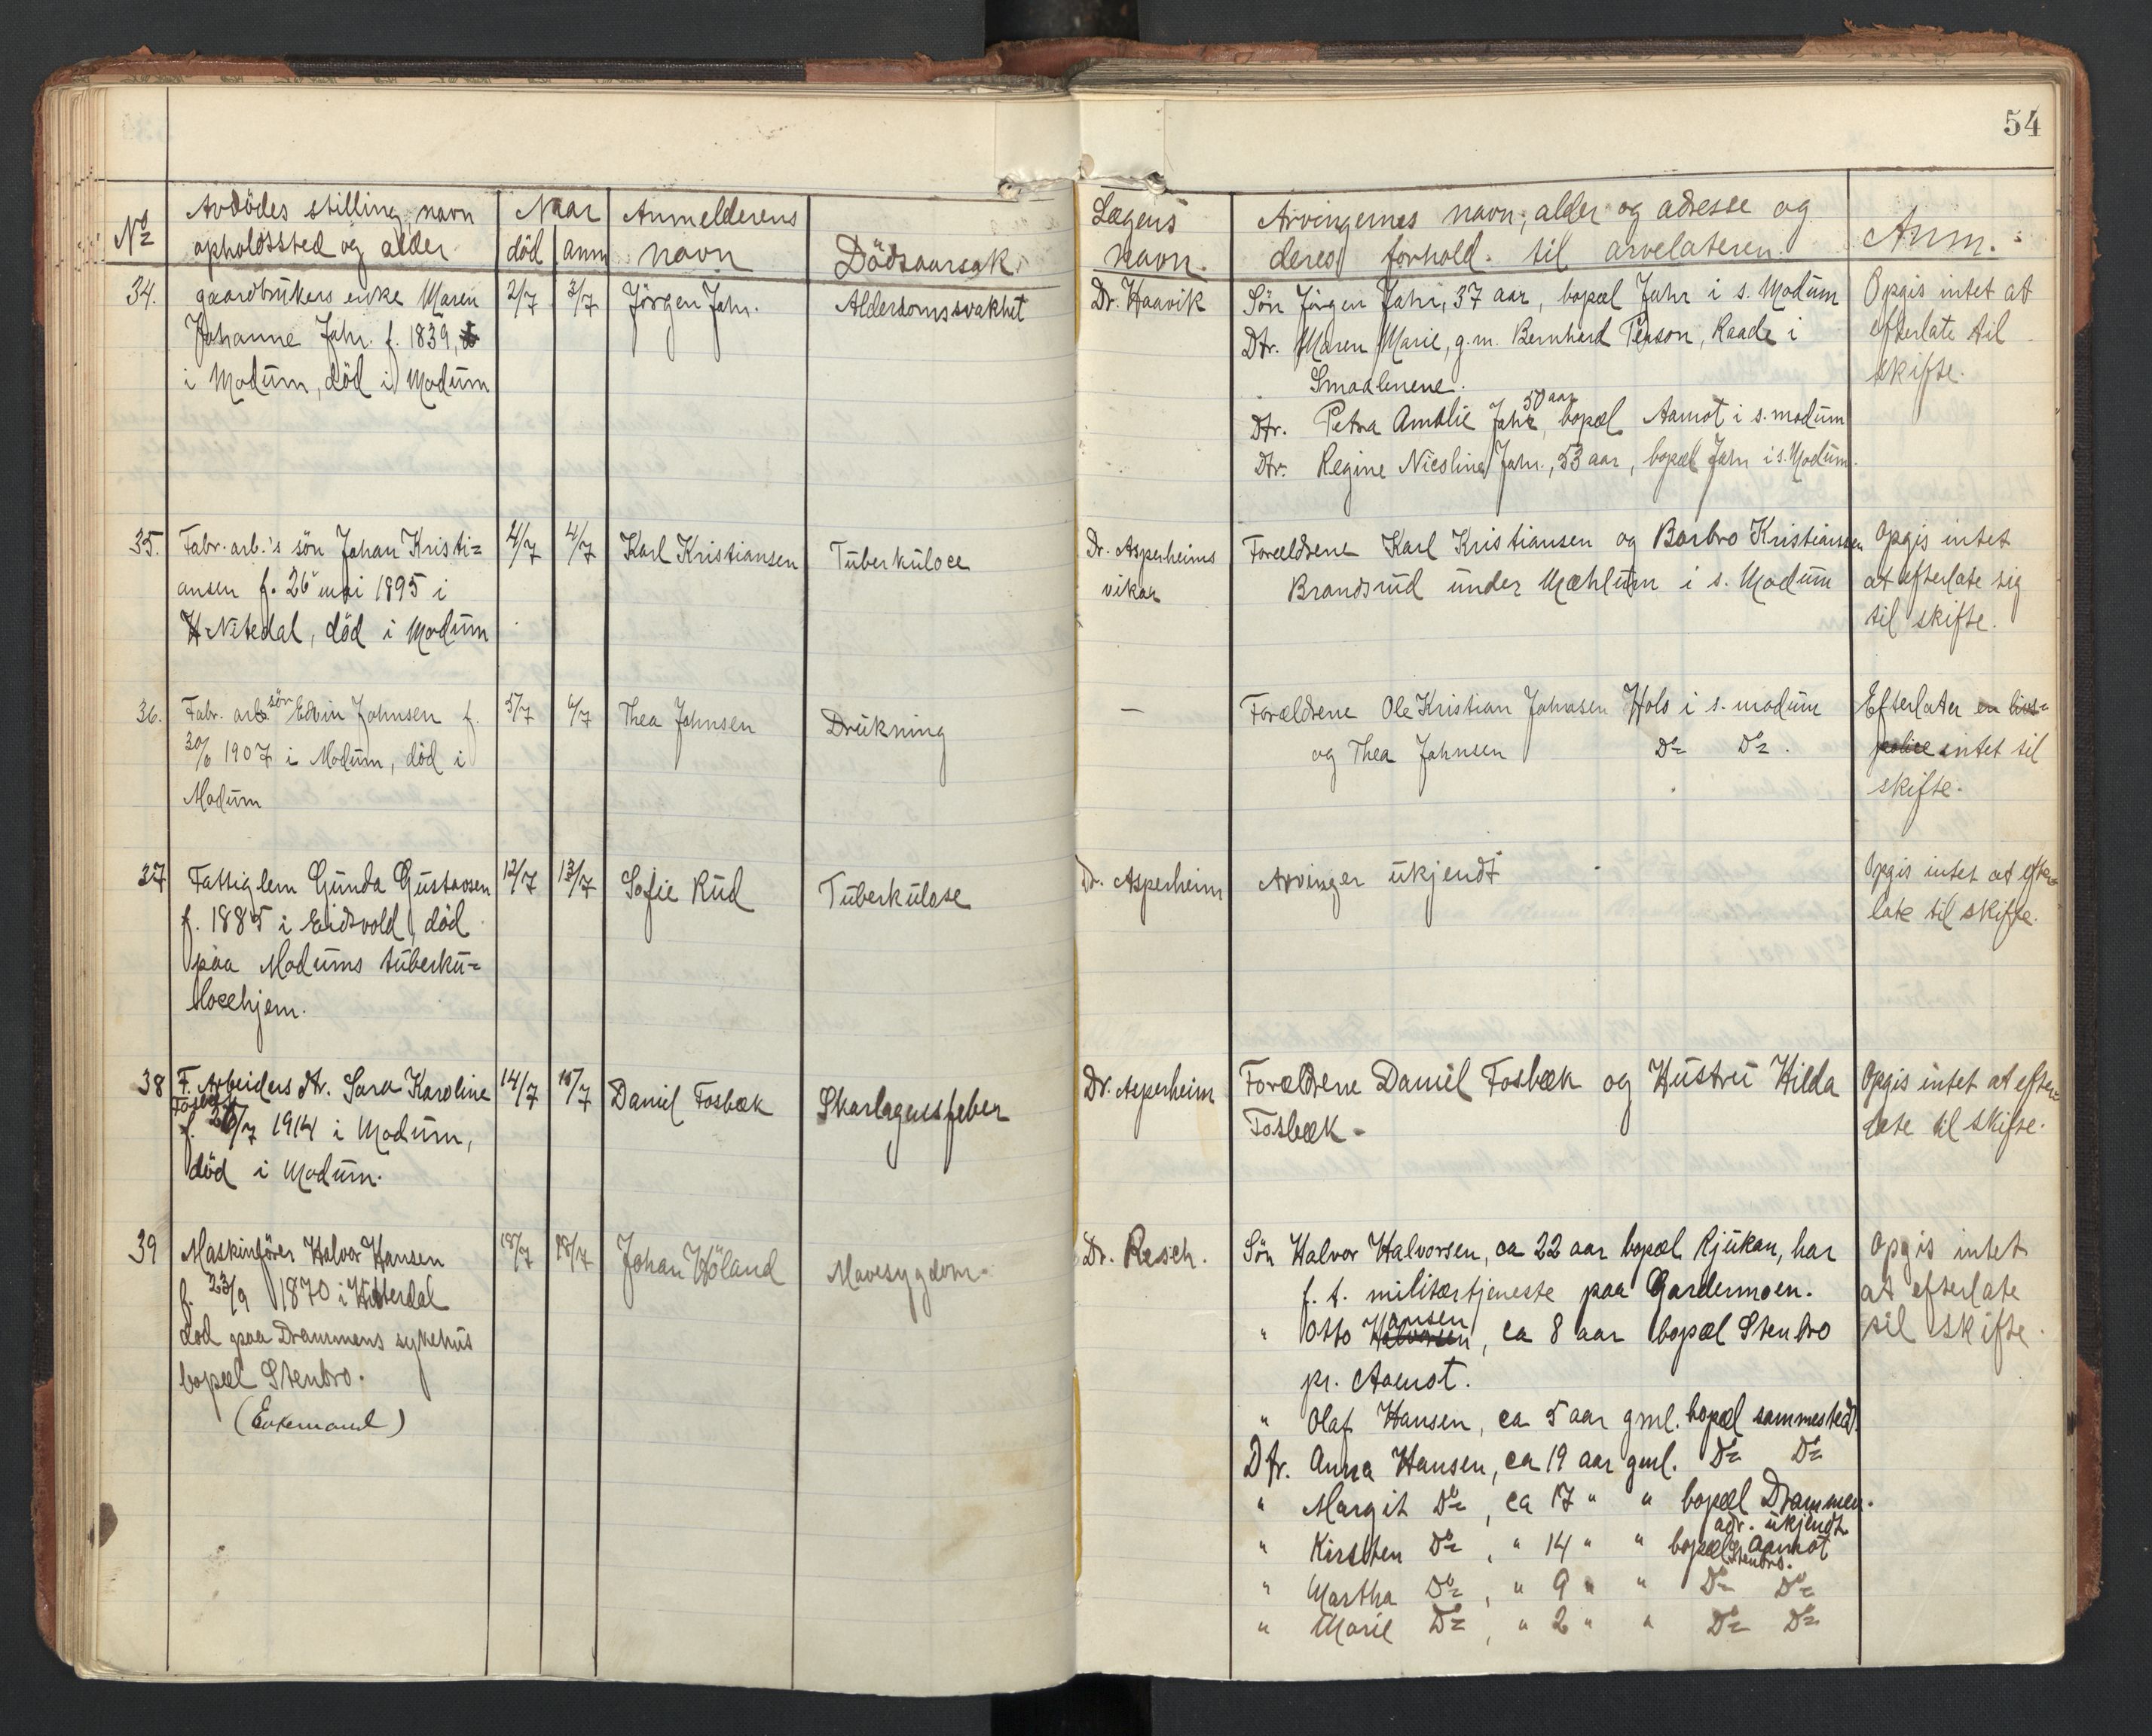 54
No
Avdödes stilling, navn
opholdssted og alder
Naar
död | anm
Anmelderens
navn
Dödsaarsak
Lægens
navn.
Arvingernes navn, alder og adresse og
deres forhold til arvelateren.
Anm.
34. gaardbrukers enke Maren
Johanne Jahr. f. 1839,
i Modum, död i Modum
2/7
3/7
Jörgen Jahr.
Alderdomssvakhet
Dr. Haavik
Sön Jörgen Jahr, 37 aar, bopæl Jahr i s. Modum
Dtr. Maren Marie, g.m. Bernhard Person, Raade i
Smaalenene.
50 aar
Dtr. Petra Amalie Jahr, bopæl Aamot i s. modum
Dtr. Regine Nicoline Jahr, 53 aar, bopæl Jahr i s. Modum.
Opgis intet at
efterlate til
skifte.
35. Fabr. arb.'s sön Johan Kristi=
ansen f. 26 mai 1895 i
Nitedal, död i Modum
4/7
4/7
Karl Kristiansen
Tuberkuloce
Dr. Asperheims
vikar
Forældrene Karl Kristiansen og Barbro Kristiansen
Brandsrud under Mæhlum i s. Modum
Opgis intet
at efterlate sig
til skifte.
36. Fabr. arb. sön Edvin Johnsen f.
30/6 1907 i Modum, död i
Modum
5/7
6/7
Thea Johnsen
Drukning
—
Forældrene Ole Kristian Johnsen Hols i s. modum
og Thea Johnsen Do Do.
Efterlater en livs=
police intet til
skifte.
37 Fattiglem Gunda Gustavsen
f. 1885 i Eidsvold, död
paa Modums tuberku=
locehjem.
12/7
13/7
Sofie Rud
Tuberkulose
Dr. Asperheim
Arvinger ukjendt
Opgis intet at efter=
late til skifte.
38 F. Arbeiders dtr. Sara Karoline
Fosbæk
f. 26/7 1914 i Modum,
död i Modum.
14/7
16/7
Daniel Fosbæk
Skarlagensfeber
Dr. Asperheim
Forældrene Daniel Fosbæk og Hustru Hilda
Fosbæk.
Opgis intet at efter=
late til skifte.
39 Maskinförer Halvor Hansen
f. 23/9 1870 i Hitterdal
död paa Drammens sykehus
bopæl Stenbro.
(Enkemand)
18/7
18/7
Johan Höland
Mavesygdom.
Dr. Resch.
Sön Halvor Halvorsen, ca 22 aar bopæl Rjukan, har
f. t. militærtjeneste paa Gardermoen.
ansen
" Otto Halvorsen, ca 8 aar bopæl Stenbro
pr. Aamot.
" Olaf Hansen, ca 5 aar gml. bopæl sammested.
Dtr. Anna Hansen, ca 19 aar gml. Do Do
" Margit Do, ca 17 " " bopæl Drammen.
adr. ukjendt
" Kirsten Do, " 14 " " bopæl Aamot
Stenbro.
" Martha Do, " 9 " " Do Do
" Marie Do, " 2 " " Do Do
Opgis intet
at efterlate
til skifte.